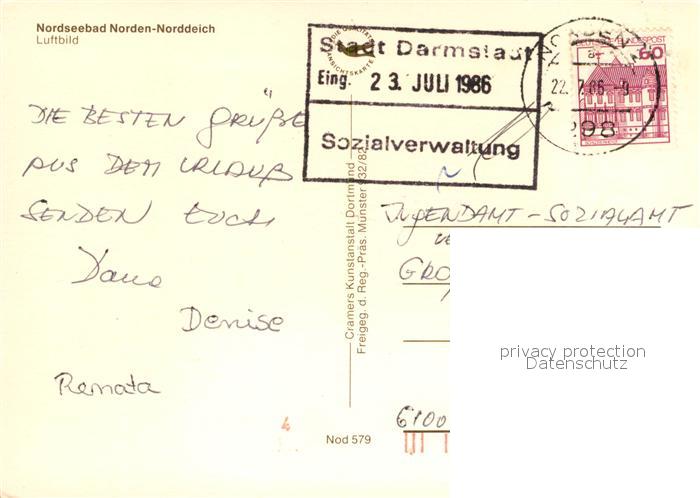 Nordseebad Norden-Norddeich
Luftbild
DIE BESTEN GRÜßE
AUS DEM URLAUB
SENDEN EUCH
Dana
Denise
Renata
Nod 579
Cramers Kunstanstalt Dortmund
Freigeg. d. Reg.-Präs. Münster 932/82
Stadt Darmstadt
Eing. 23. JULI 1986
Sozialverwaltung
NORDEN
22.7.86-9
298
DEUTSCHE BUNDESPOST
60
JUGENDAMT-SOZIALAMT
GRO
6100
privacy protection
Datenschutz